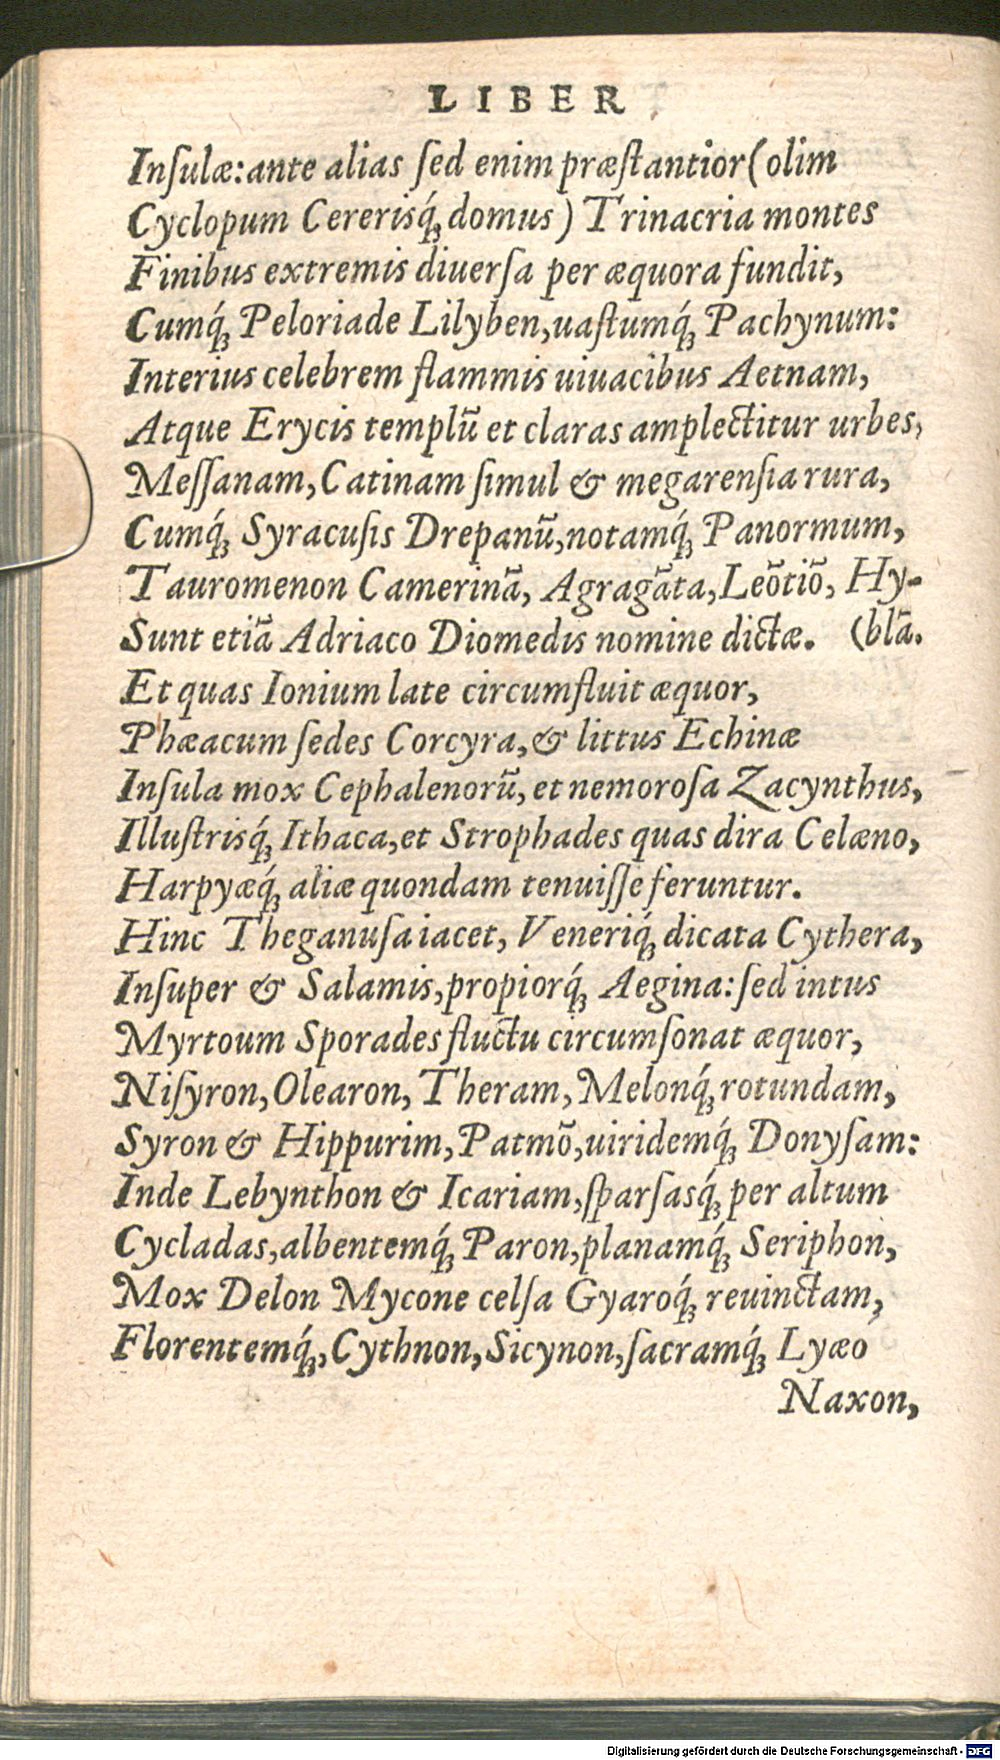 LIBER
Inſulæ: ante alias ſed enim præſtantior (olim
Cyclopum Cererisq́; domus) Trinacria montes
Finibus extremis diuerſa per æquora fundit,
Cumq́; Peloriade Lilyben, uaſtumq́; Pachynum:
Interius celebrem flammis uiuacibus Aetnam,
Atque Erycis templũ et claras amplectitur urbes,
Meſſanam, Catinam ſimul & megarenſia rura,
Cumq́; Syracuſis Drepanũ, notamq́; Panormum,
Tauromenon Camerinã, Agragãta, Leõtiõ, Hy-
Sunt etiã Adriaco Diomedis nomine dictæ. (blã.
Et quas Ionium late circumfluit æquor,
Phæacum ſedes Corcyra, & littus Echinæ
Inſula mox Cephalenorũ, et nemoroſa Zacynthus,
Illuſtrisq́; Ithaca, et Strophades quas dira Celæno,
Harpyæq́; aliæ quondam tenuiſſe feruntur.
Hinc Theganuſa iacet, Veneriq́; dicata Cythera,
Inſuper & Salamis, propiorq́; Aegina: ſed intus
Myrtoum Sporades fluctu circumſonat æquor,
Niſyron, Olearon, Theram, Melonq́; rotundam,
Syron & Hippurim, Patmõ, uiridemq́; Donyſam:
Inde Lebynthon & Icariam, ſparſasq́; per altum
Cycladas, albentemq́; Paron, planamq́; Seriphon,
Mox Delon Mycone celſa Gyaroq́; reuinctam,
Florentemq́;, Cythnon, Sicynon, ſacramq́; Lyæo
Naxon,
Digitalisierung gefördert durch die Deutsche Forschungsgemeinschaft - DFG